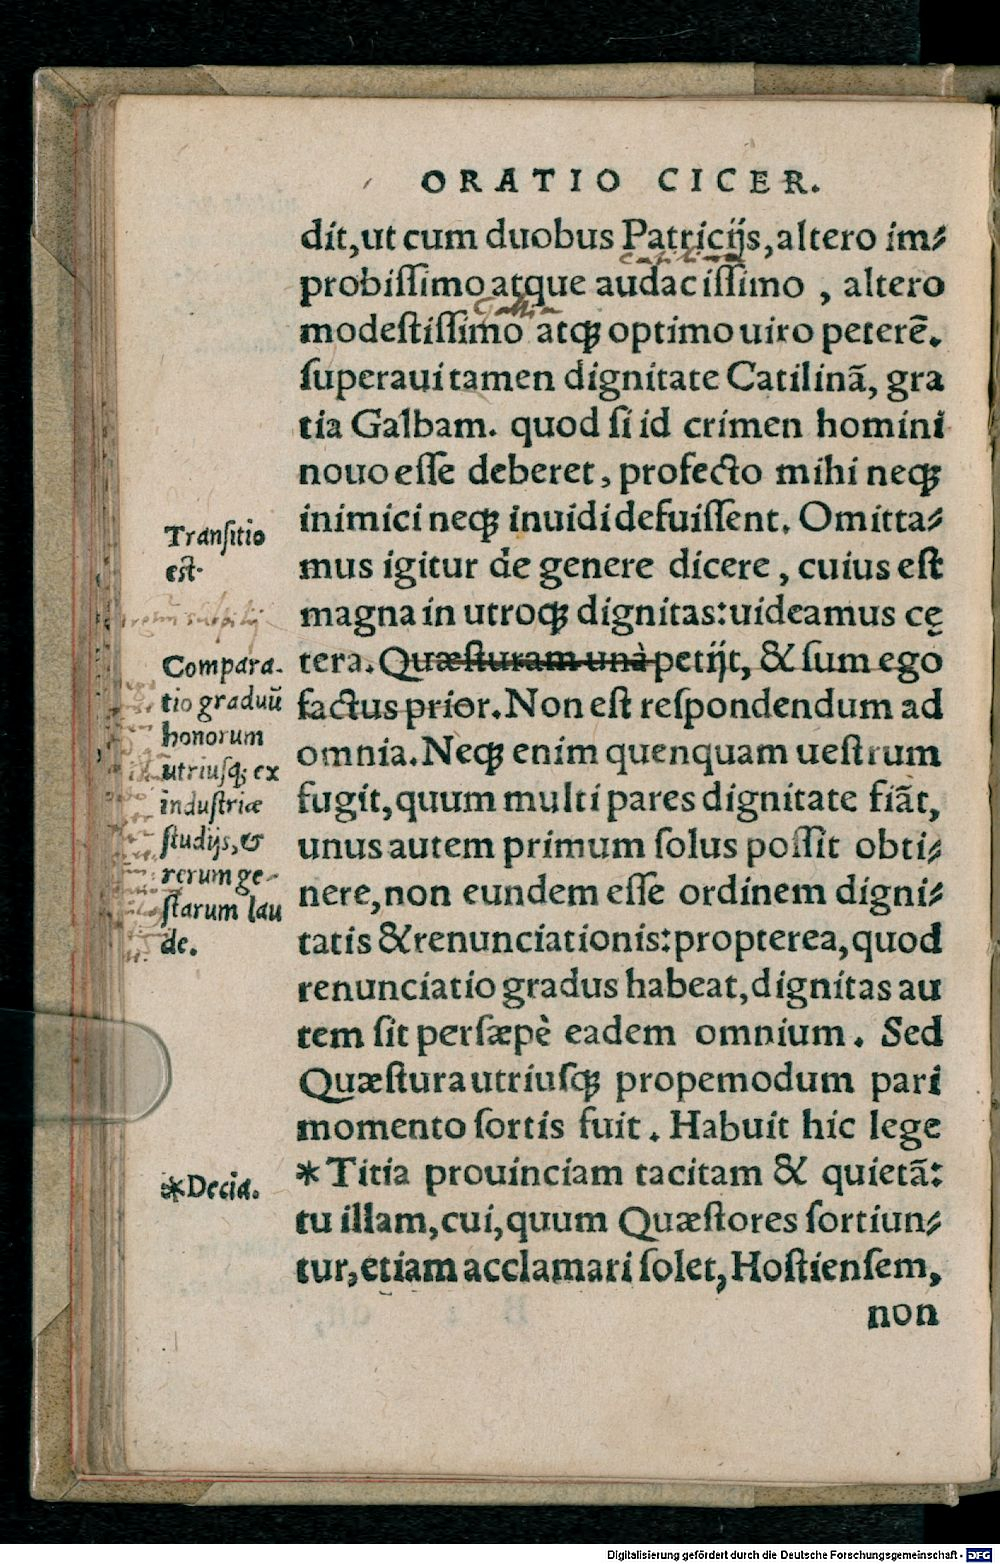 ORATIO CICER.
dit,ut cum duobus Patricijs,altero im⸗
Catilina
probissimo atque audacissimo , altero
modestissimo atqꝫ optimo uiro peterẽ.
superaui tamen dignitate Catilinã, gra
tia Galbam. quod si id crimen homini
nouo esse deberet, profecto mihi neqꝫ
inimici neqꝫ inuidi defuissent. Omitta⸗
mus igitur de genere dicere, cuius est
magna in utroqꝫ dignitas: uideamus cę
tera. Quæsturam unà petijt, & sum ego
factus prior. Non est respondendum ad
omnia. Neqꝫ enim quenquam uestrum
fugit, quum multi pares dignitate fiãt,
unus autem primum solus possit obti⸗
nere, non eundem esse ordinem digni⸗
tatis & renunciationis: propterea, quod
renunciatio gradus habeat, dignitas au
tem sit persæpè eadem omnium. Sed
Quæstura utriusqꝫ propemodum pari
momento sortis fuit. Habuit hic lege
*Titia prouinciam tacitam & quietã:
tu illam, cui, quum Quæstores sortiun⸗
tur, etiam acclamari solet, Hostiensem,
non
Transitio
est.
Compara-
tio graduũ
honorum
utriusqꝫ ex
industriæ
studijs, &
rerum ge-
starum lau
de.
*Decia.
Digitalisierung gefördert durch die Deutsche Forschungsgemeinschaft - DFG